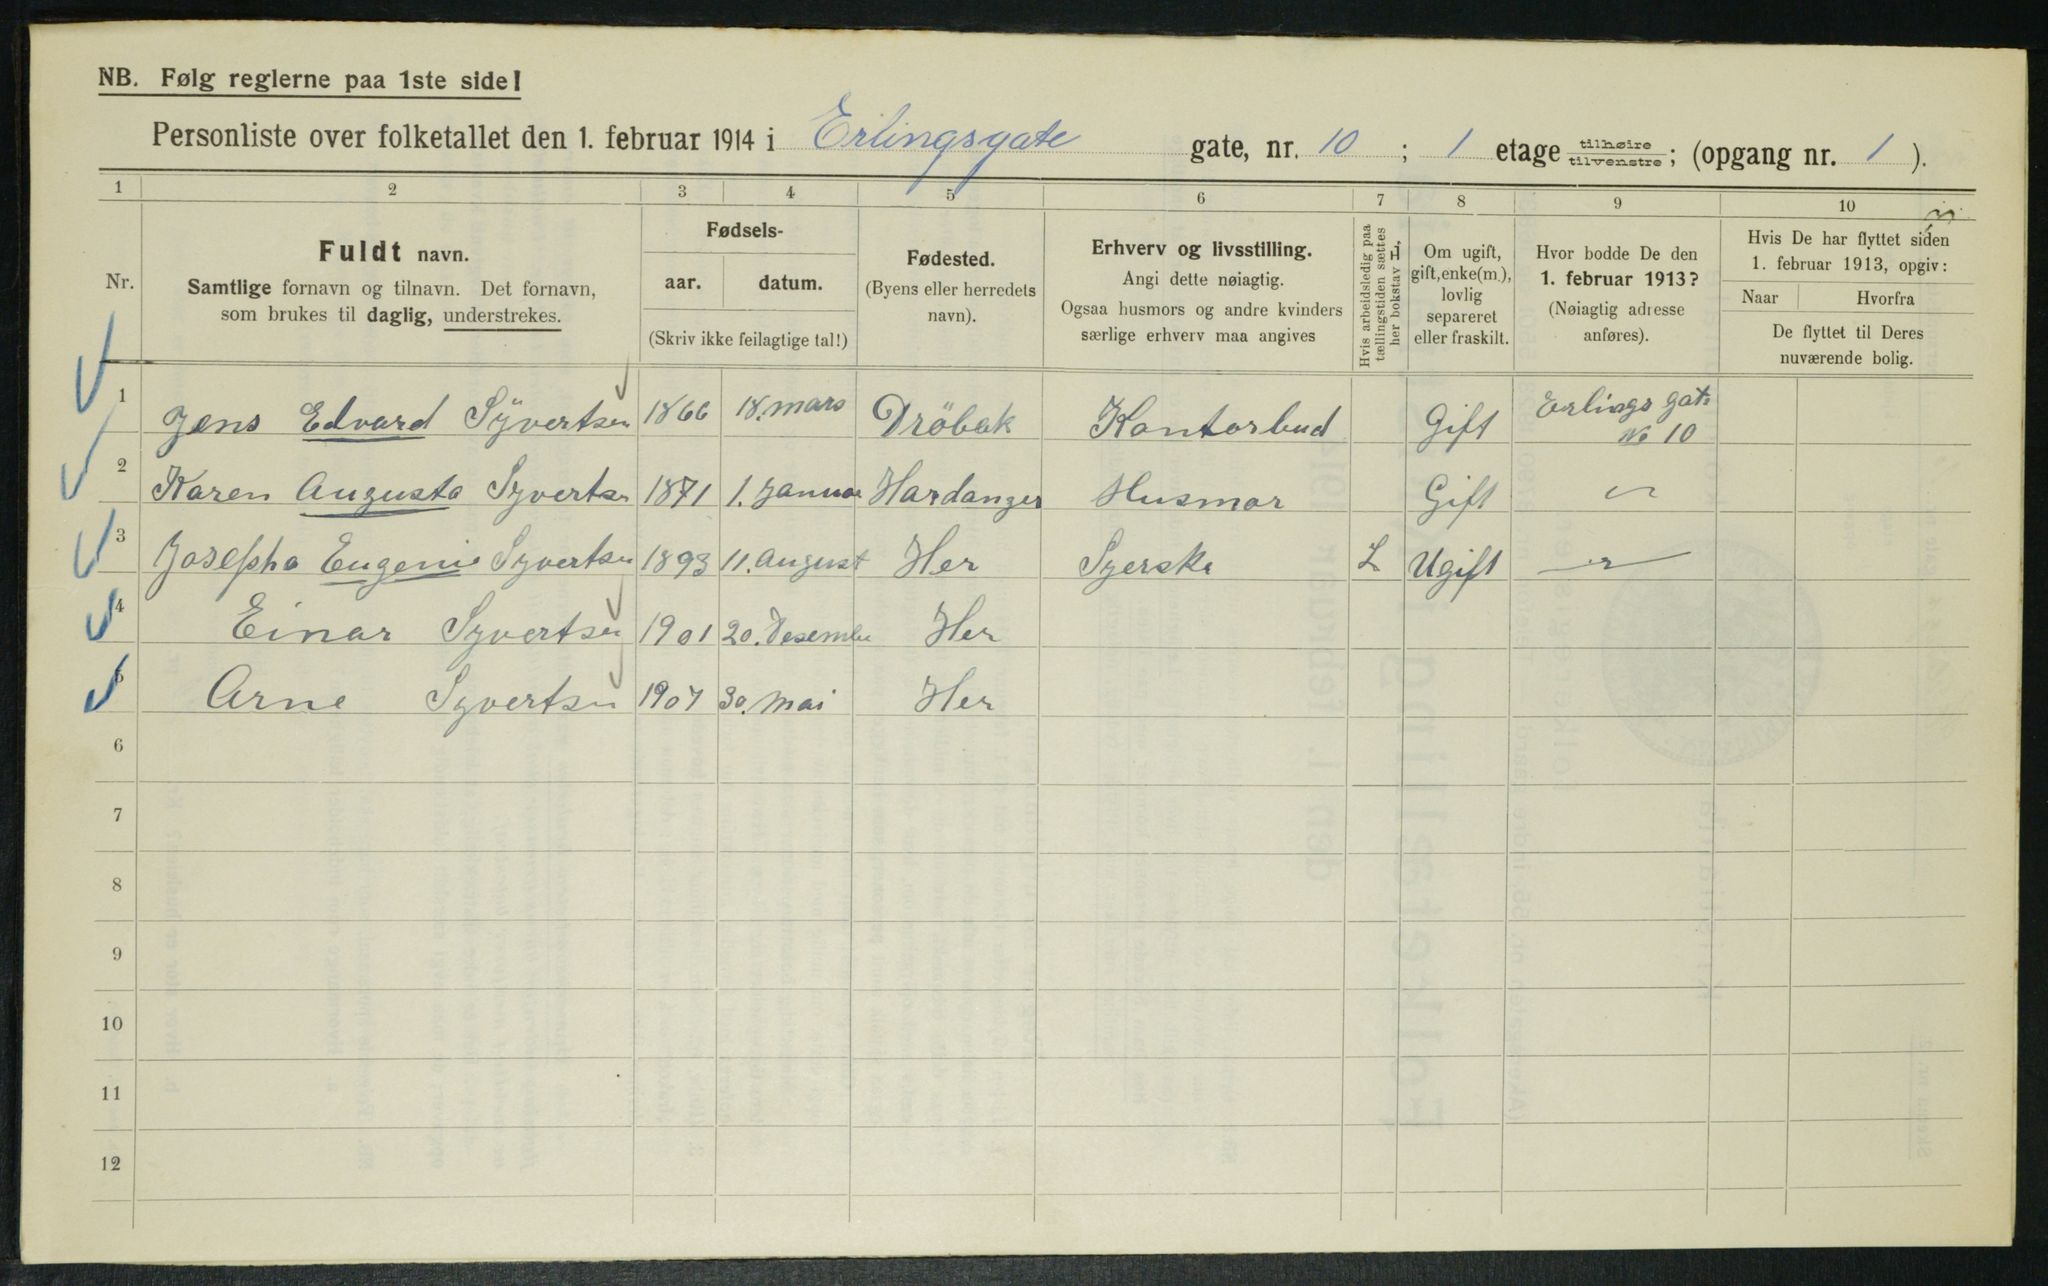 NB. Følg reglerne paa 1ste side!
Personliste over folketallet den 1. februar 1914 i Erlingsgate gate, nr. 10 ; 1 etage tilhøire tilvenstre ; (opgang nr. 1 ).
1 2 3 4 5 6 7 8 9 10
Nr.
Fuldt navn.
Samtlige fornavn og tilnavn. Det fornavn,
som brukes til daglig, understrekes.
Fødsels-
aar. datum.
(Skriv ikke feilagtige tal!)
Fødested.
(Byens eller herredets
navn).
Erhverv og livsstilling.
Angi dette nøiagtig.
Ogsaa husmors og andre kvinders
særlige erhverv maa angives
Hvis arbeidsledig paa
tællingstiden sættes
her bokstav L.
Om ugift,
gift, enke(m.),
lovlig
separeret
eller fraskilt.
Hvor bodde De den
1. februar 1913?
(Nøiagtig adresse
anføres).
Hvis De har flyttet siden
1. februar 1913, opgiv:
Naar Hvorfra
De flyttet til Deres
nuværende bolig.
1 Jens Edvard Sÿvertsen 1866 18. mars Dröbak Kontorbud Gift Erlings gate
No 10
2 Karen Augusta Syvertsen 1871 1. Januar Hardanger Husmor Gift
3 Josepha Eugenie Syvertsen 1893 11. August Her Syerske L Ugift
4 Einar Syvertsen 1901 20. Desember Her
5 Arne Syvertsen 1907 30. Mai Her
6
7
8
9
10
11
12